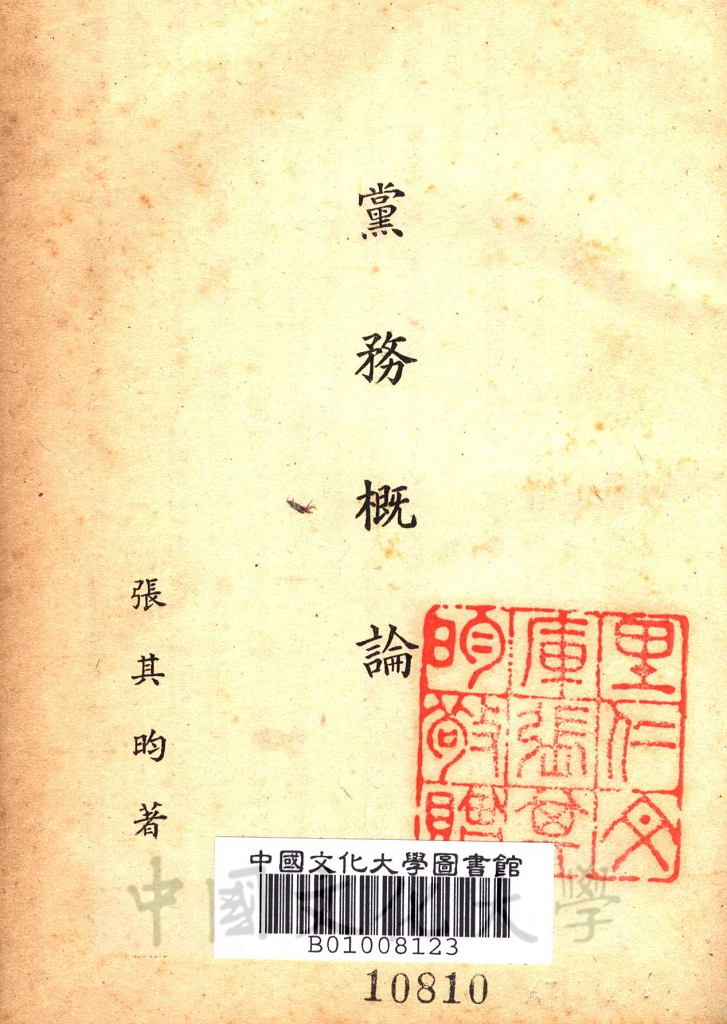 黨務概論
張其昀著
里仁文
庫張其
昀敬贈
中國文化大學圖書館
B01008123
中國文化大學
10810